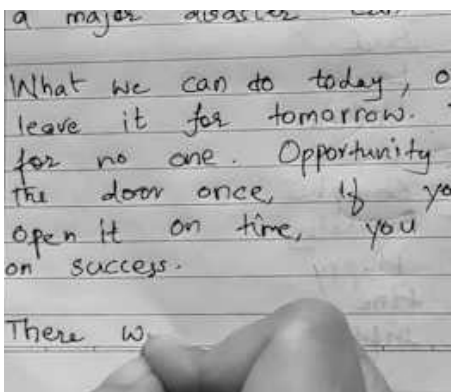 a major disaster can
What we can do today, o
leave it for tomorrow.
for no one. Opportunity
the door once, if yo
open it on time, you
on success.
There w